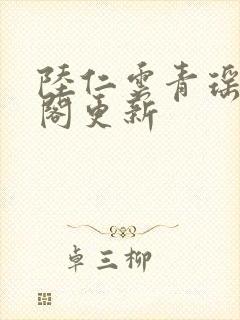 陸仁雲青瑶
閣更新
卓三柳